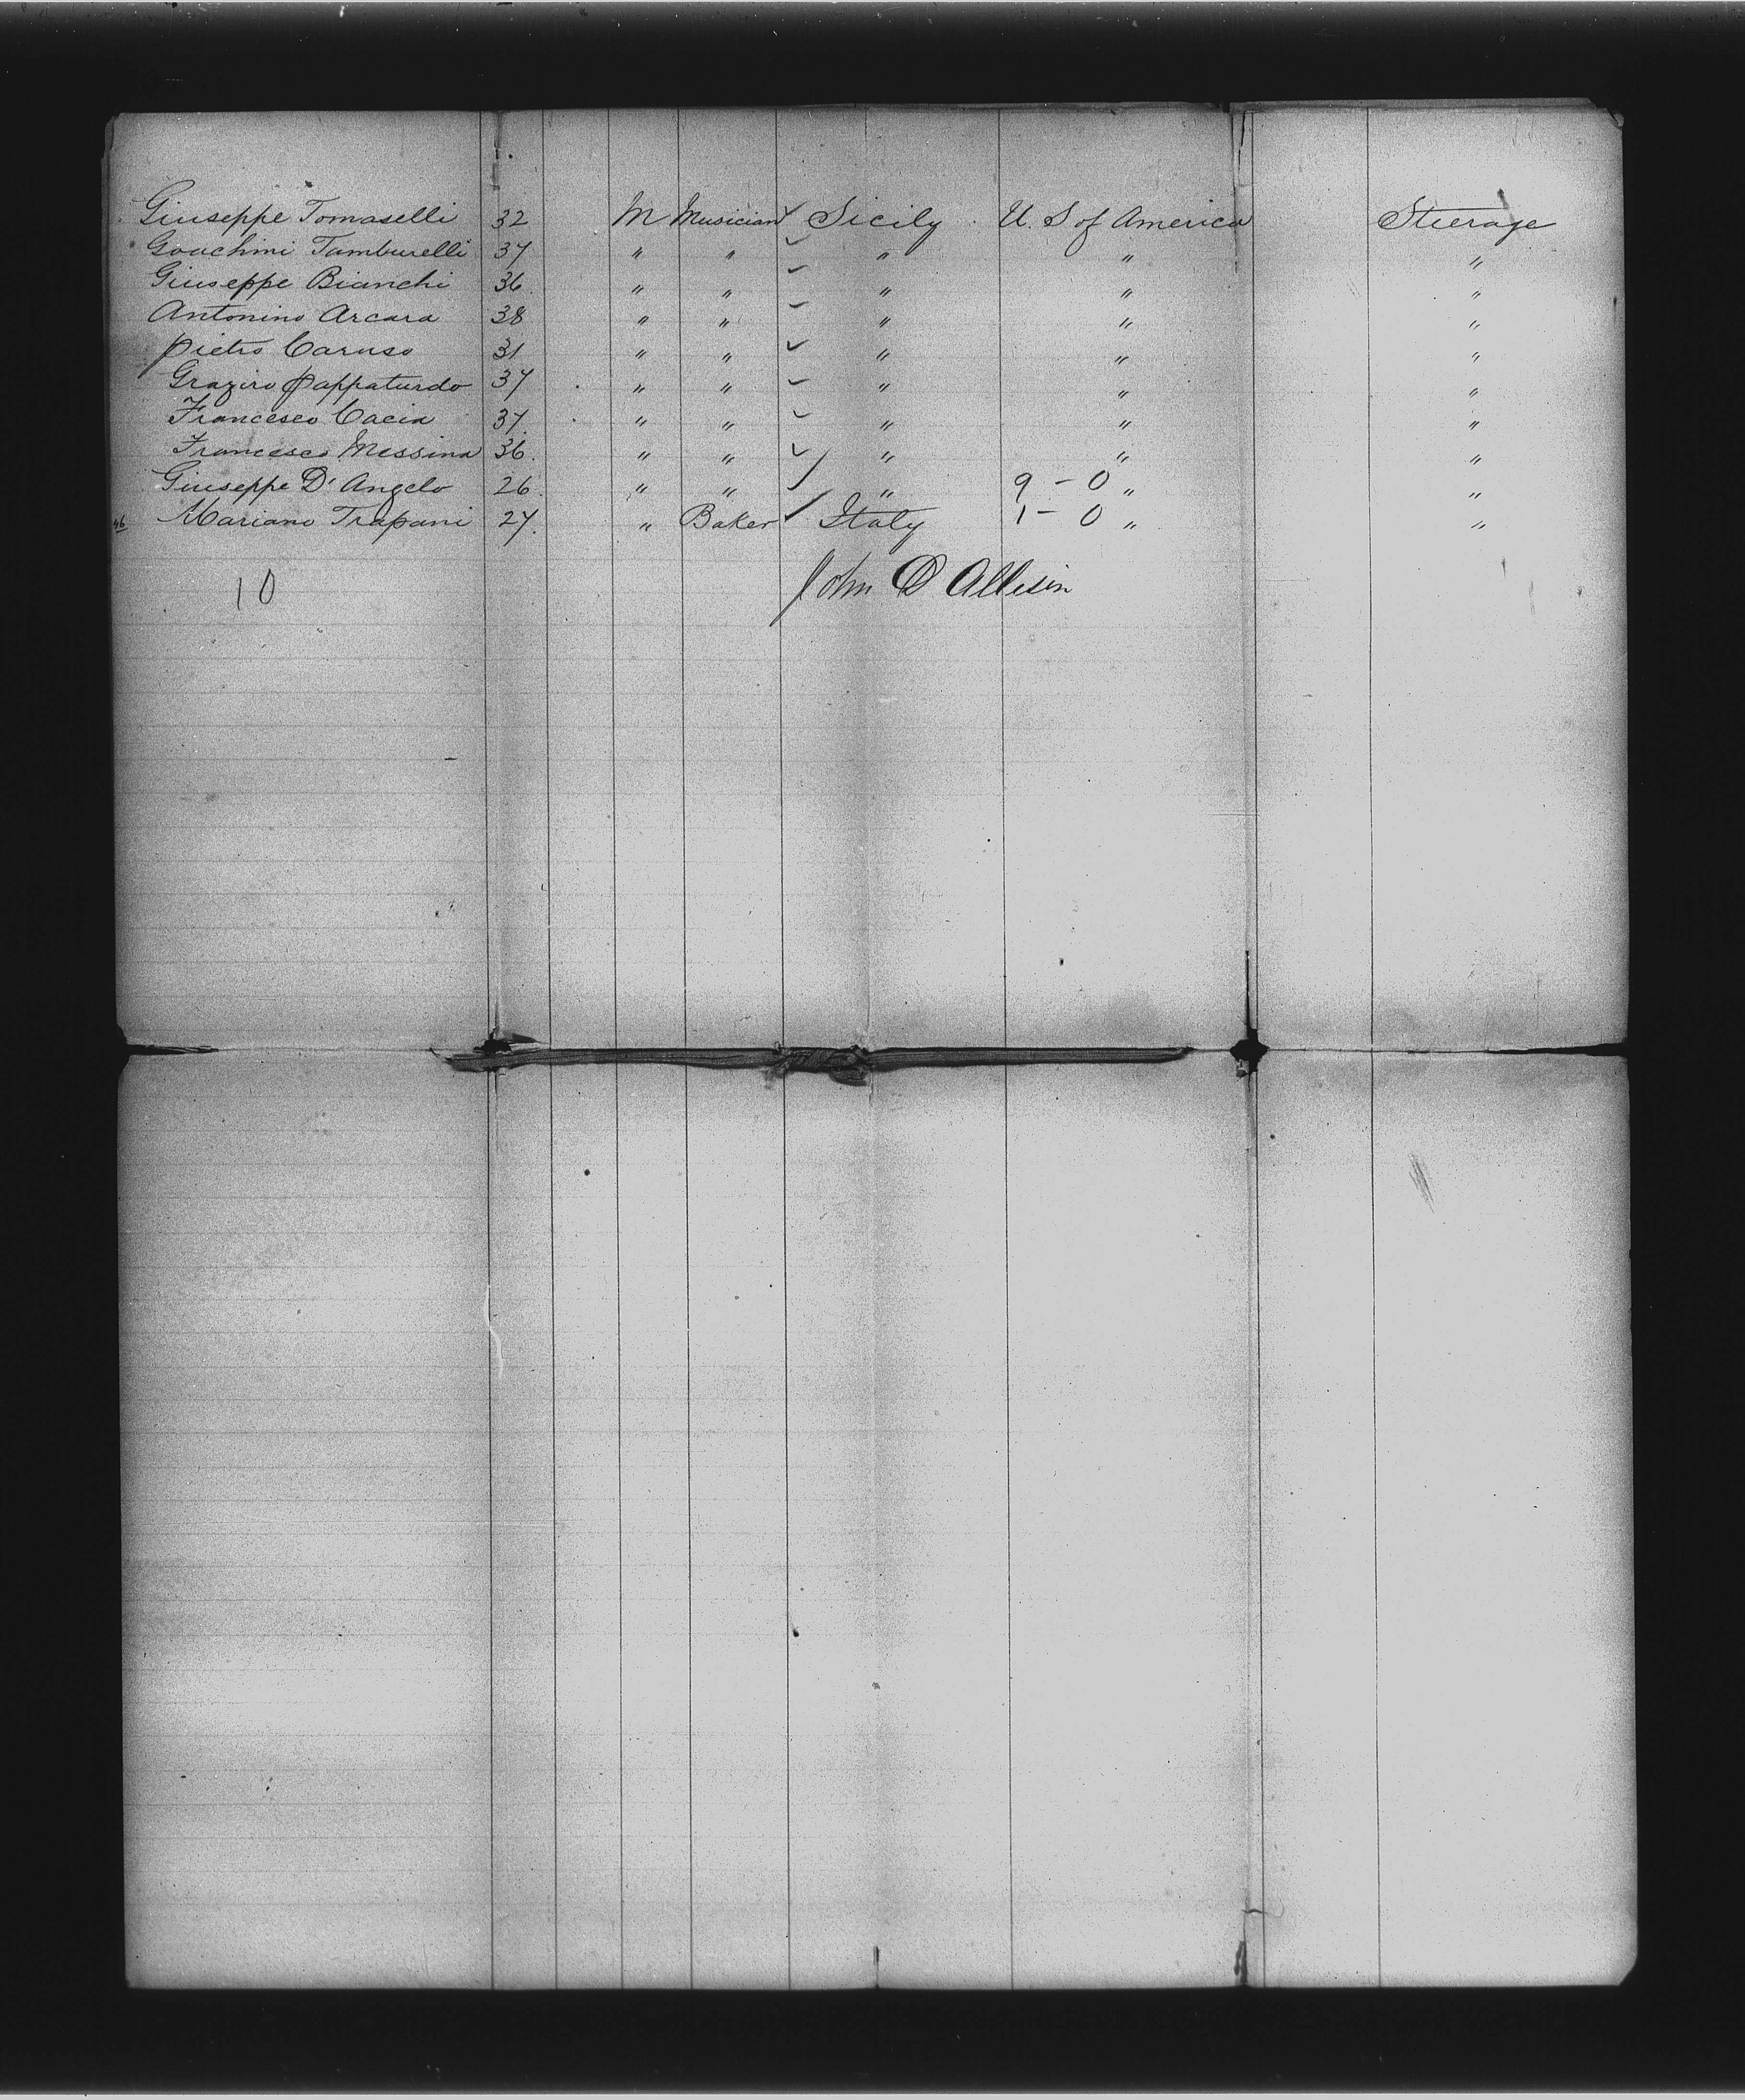 Giuseppe Tomaselli 32 M Musician ✓ Sicily U. S of America Steerage
Goachini Tamburelli 37 " " ✓ " " "
Giuseppe Bianchi 36. " " ✓ " " "
Antonino Arcara 38 " " ✓ " " "
Pietro Caruso 31 " " ✓ " " "
Graziro Pappaturdo 37 " " ✓ " " "
Francesco Cacia 37. " " ✓ " " "
Francesco Messina 36. " " ✓ " " "
Giuseppe D'Angelo 26. " " ✓ " 9 - 0 " "
46 Mariano Trapani 27. " Baker ✓ Italy 1 - 0 " "
10 John D Allisin